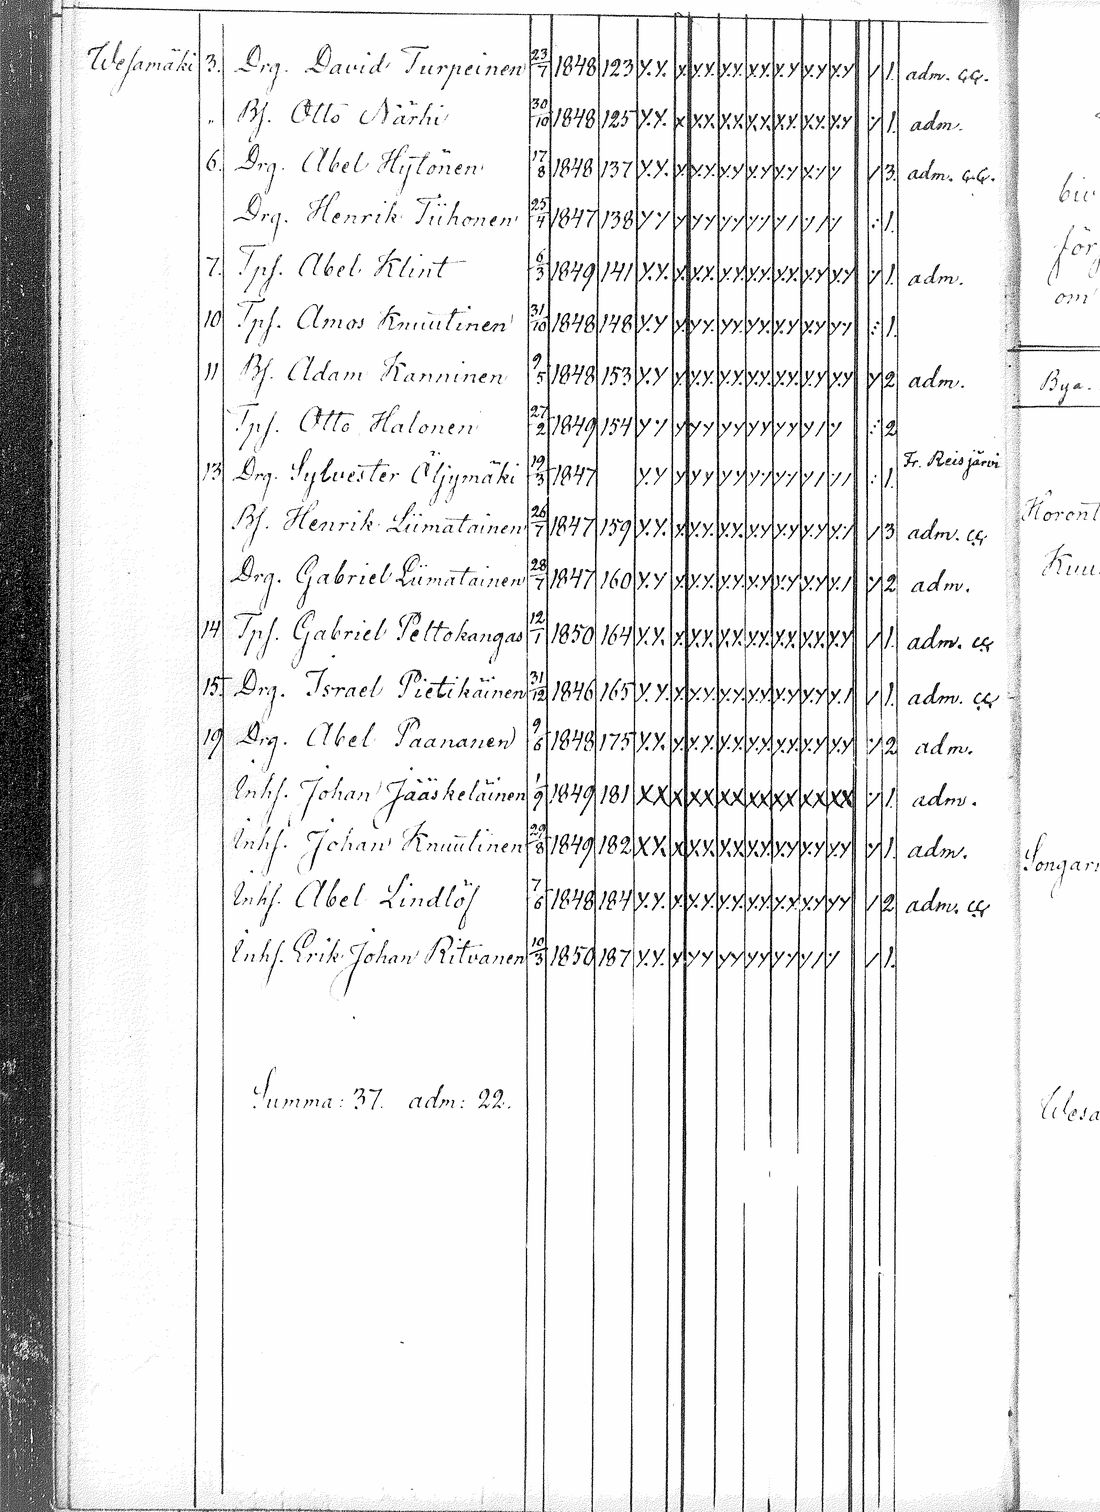 Wesamäki 3. Drg. David Turpeinen 23/7 1848 123 adm.
" Bs. Otto Närhi 30/10 1848 125 1. adm.
6. Drg. Abel Hytönen 17/8 1848 137 3. adm.
Drg. Henrik Tiihonen 25/4 1847 138 1.
7. Tpf. Abel Klint 6/3 1849 141 1. adm.
10 Tpf. Amos Knuutinen 31/10 1848 148 1.
11 Bs. Adam Kanninen 9/5 1848 153 2 adm.
Tpf. Otto Halonen 27/2 1849 154 2
13 Drg. Sylvester Öljymäki 19/3 1847 1. Fr. Reisjärvi
Bs. Henrik Liimatainen 26/7 1847 159 3 adm.
Drg. Gabriel Liimatainen 28/7 1847 160 2 adm.
14 Tpf. Gabriel Peltokangas 12/1 1850 164 1. adm.
15. Drg. Israel Pietikäinen 31/12 1846 165 1. adm.
19 Drg. Abel Paananen 9/6 1848 175 2 adm.
Inhs. Johan Jääskeläinen 1/9 1849 181 1. adm.
Inhs. Johan Knuutinen 29/8 1849 182 1. adm.
Inhs. Abel Lindlöf 7/6 1848 184 2 adm.
Inhs. Erik Johan Ritvanen 10/3 1850 187 1.
Summa: 37. adm: 22.
om
Bya.